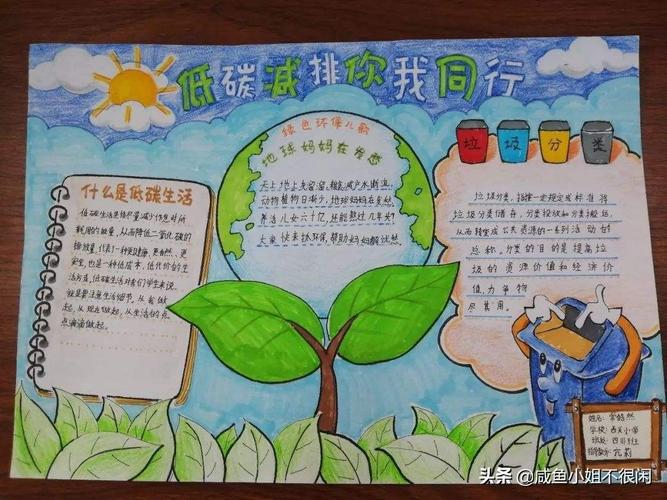 低碳减排你我同行
什么是低碳生活
低碳生活是指尽量减少作息时所
耗用的能量,从而降低二氧化碳的
排放量,代表了一种更健康、更自然、更
安全,也是一种低成本、低代价的生
活方式,低碳生活对我们学生来说,
就是要注意生活细节,从我做
起,从现在做起,从生活的点
点滴滴做起。
绿色环保儿歌
地球妈妈在发愁
天上地上臭溜溜,粮食减产水断流,
动物植物日渐少,地球妈妈在发愁,
养活儿女六十亿,还能熬过几年头?
大家快来环保,帮助妈妈解忧愁
垃 圾 分 类
垃圾分类,指按一定规定或标准将
垃圾分类储存,分类投放和分类搬运,
从而转变成公共资源的一系列活动的
总称。分类的目的是提高垃
圾的资源价值和经济价
值,力争物
尽其用。
学校:西关小学
班级:四
头条 @咸鱼小姐不很闲